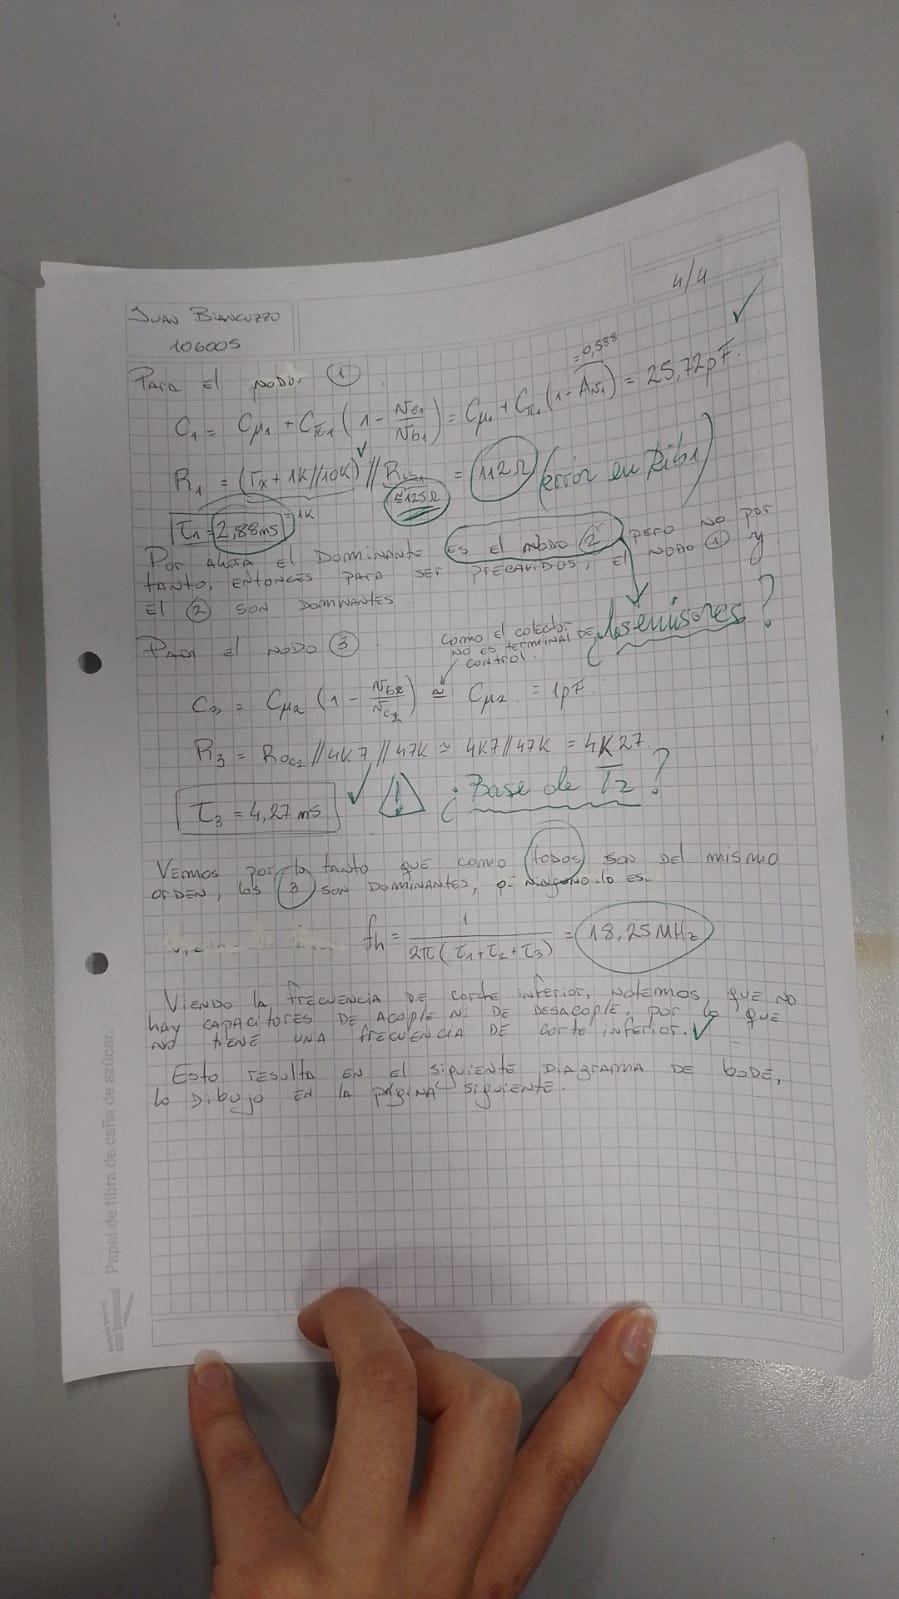 Juan Biancuzzo
106005
4/4
Para el nodo ①
= 0,588
C₁ = Cμ₁ + Cπ₁ (1 - Ve₁/Vb₁) = Cμ₁ + Cπ₁ (1 - Av₁) = 25,72 pF.
R₁ = (rx + 1K//10K) // Rib₁ = 112Ω (error en Rib1)
≅125Ω
≅1K
τ₁ = 2,88 ms
Por ahora el dominante es el nodo ② pero no por
tanto, entonces para ser precavidos, el nodo ① y
el ② son dominantes
¿los emisores?
Para el nodo ③
Como el colector
no es terminal de
control.
C₃ = Cμ₂ (1 - Vb₂/Vc₂) ≅ Cμ₂ = 1pF.
R₃ = Roc₂//4K7//47K ≃ 4K7//47K = 4K27
τ₃ = 4,27 ms
¿Base de T₂?
Vemos por lo tanto que como todos son del mismo
orden, los 3 son dominantes, o ninguno lo es.
fh = 1 / 2π(τ₁+τ₂+τ₃) = 18,25 MHz
Viendo la frecuencia de corte inferior, notemos que no
hay capacitores de acople ni de desacople, por lo que
no tiene una frecuencia de corte inferior.
Esto resulta en el siguiente diagrama de bode,
lo dibujo en la página siguiente.
Papel de fibra de caña de azúcar.